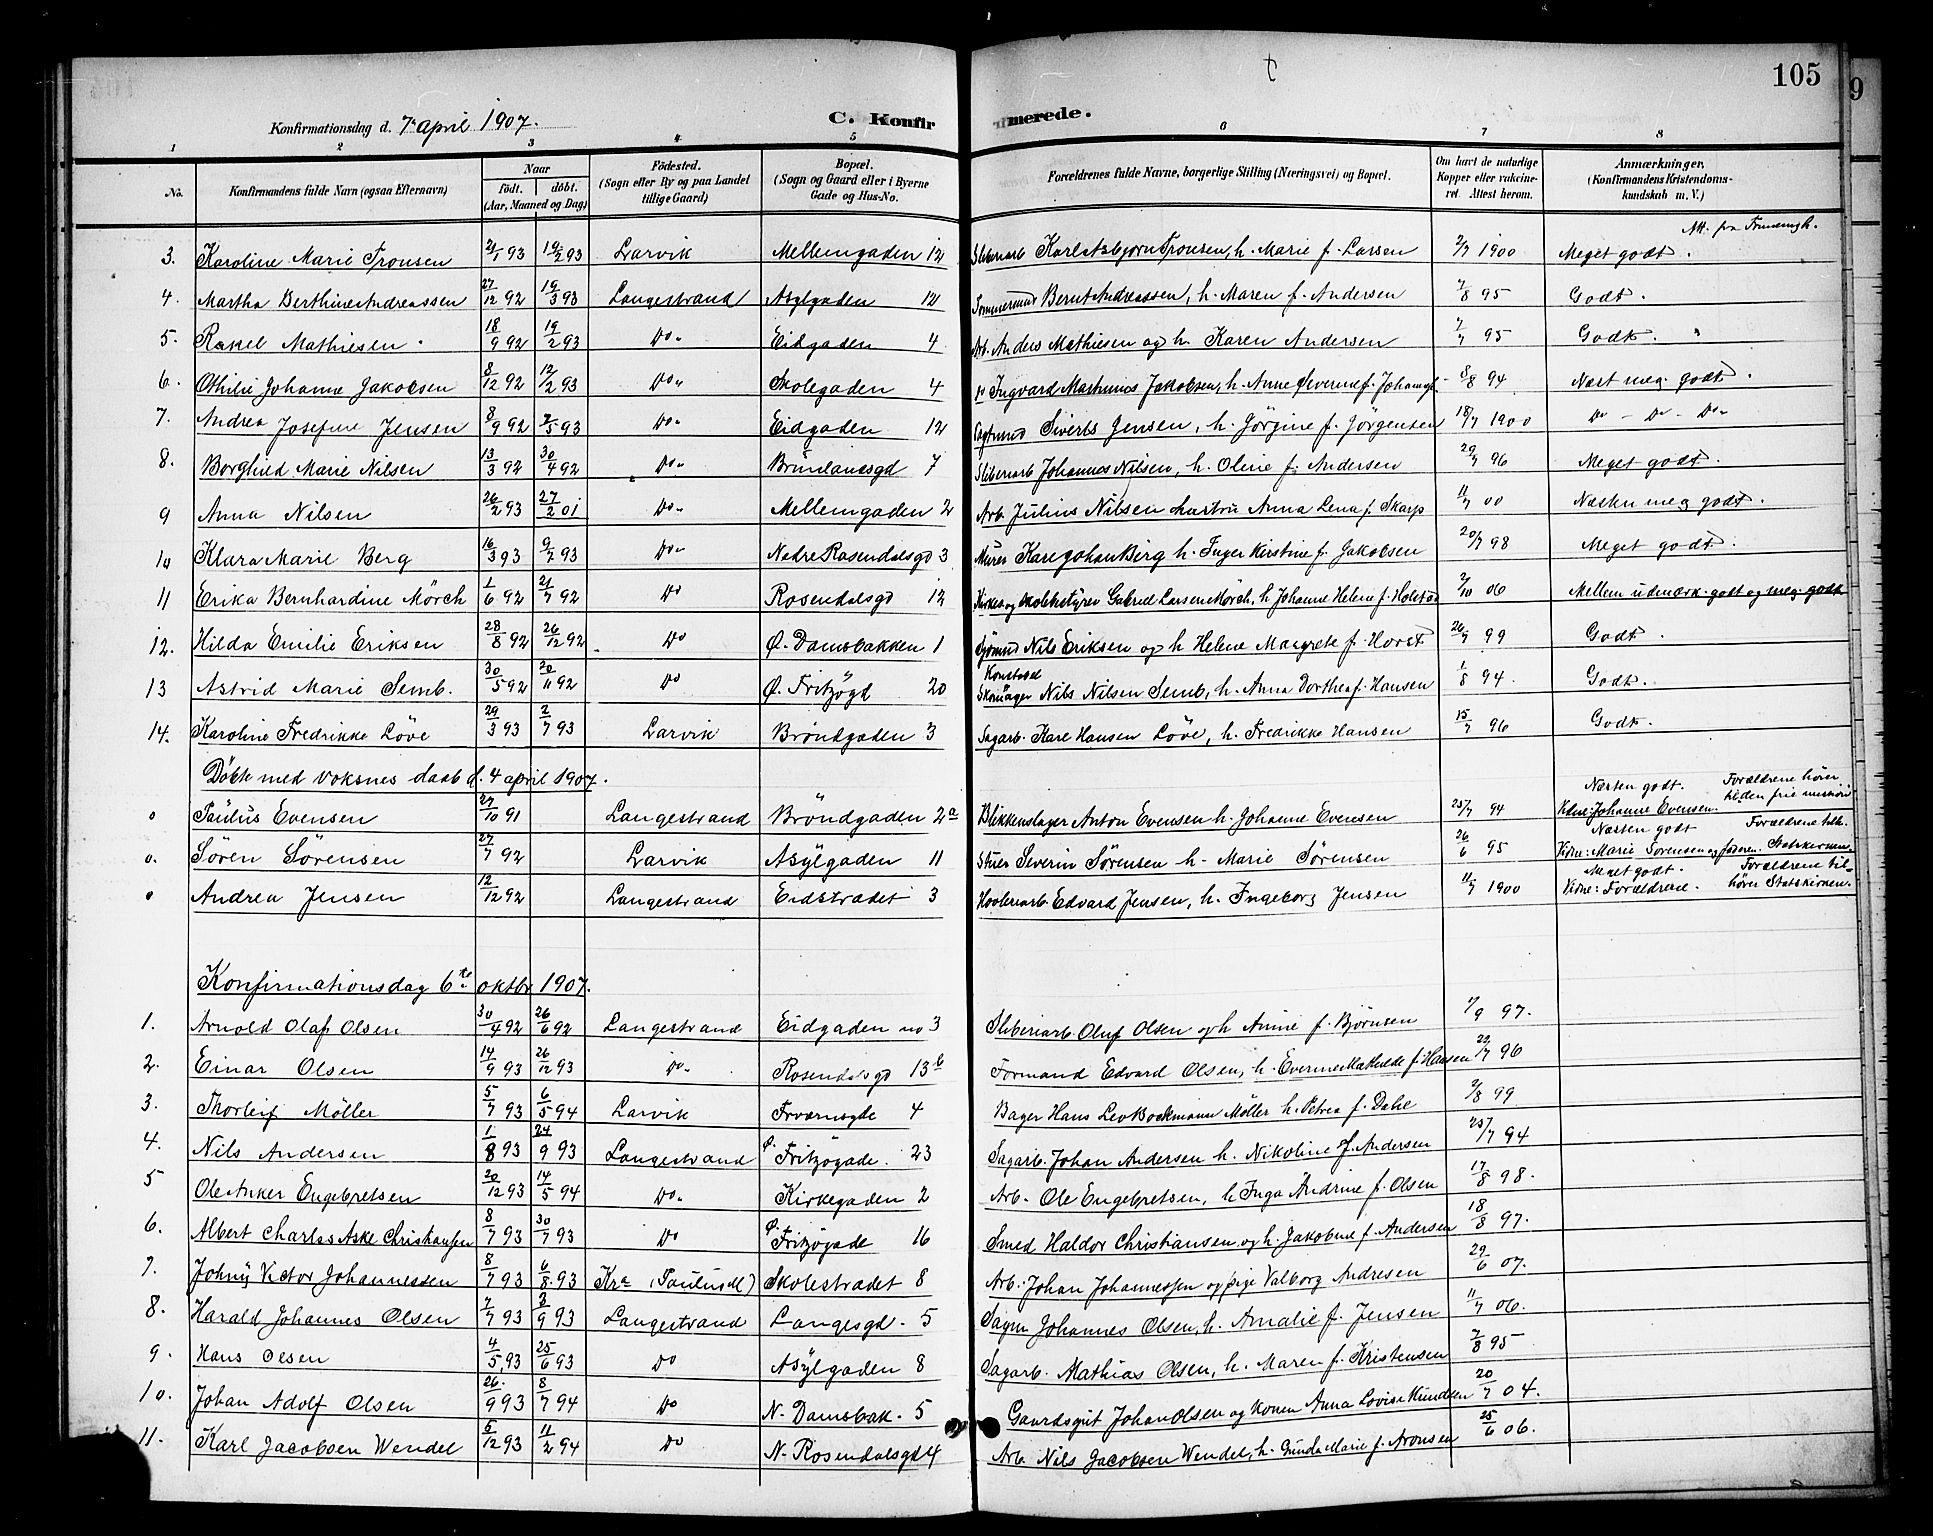 105
9
Konfirmationsdag d. 7 april 1907. C. Konfirmerede.
1 2 3 4 5 6 7 8
No. Konfirmandens fulde Navn (ogsaa Efternavn) Naar født. døbt. (Aar, Maaned og Dag) Födested. (Sogn efter By og paa Landet tillige Gaard) Bopæl. (Sogn og Gaard eller i Byerne Gade og Hus-No. Forældrenes fulde Navne, borgerlige Stilling (Næringsvei) og Bopæl. Om havt de naturlige Kopper eller vaccineret. Attest herom. Anmærkninger, (Konfirmandens Kristendomskundskab m. V.)
3. Karoline Marie Tronsen 21/1 93 19/2 93 Larvik Mellemgaden 12 Sliberiarb. Karl Asbjørn Tronsen, h. Marie f. Larsen 2/7 1900 Meget godt.
4. Martha Berthine Andreassen 27/12 92 19/3 93 Langestrand Asylgaden 12 Tømmermd Bernt Andreassen, h. Maren f. Andersen 7/8 95 Godt.
5. Rakel Mathiesen 18/9 92 19/2 93 Do. Eidgaden 4 Arb. Anders Mathiesen og h. Karen Andersen 7/7 95 Godt.
6. Othilie Johanne Jakobsen 8/12 92 12/2 93 Do. Skolegaden 4 Ingvard Martinius Jakobsen, h. Anne Severine f. 8/8 94 Næst meg. godt.
7. Andrea Josefine Jensen 8/9 92 7/5 93 Do. Eidgaden 12 Siverts Jensen, h. Jørgine f. Jørgensen 18/7 1900 Do - Do - Do.
8. Borghild Marie Nilsen 13/3 92 30/4 92 Do. Brunlanesgd 7 Sliberiarb Johannes Nilsen, h. Oline f. Andersen 29/7 96 Meget godt.
9 Anna Nilsen 26/2 93 27/2 01 Do. Mellemgaden 2 Arb. Julius Nilsen hustru Anna Lena f. Skarp 11/7 00 Næsten meg godt.
10 Klara Marie Berg 16/3 93 9/7 93 Do. Nedre Rosendalsgd 3 Murer Karl Johan Berg h. Inger Kirstine f. Jakobsen 20/7 98 Meget godt.
11 Erika Bernhardine Mörch 1/6 92 21/7 92 Do Rosendalsgd 12 Gabriel Larsen Mörch, h. Johanne Helene f. 2/10 06 Mellem udmærk. godt og meg. godt
12. Hilda Emilie Eriksen 28/8 92 26/12 92 Do Ø. Damsbakken 1 Sjømnd Nils Eriksen og h Helene Margrete f. Horst 26/7 99 Godt.
13 Astrid Marie Semb. 30/5 92 20/11 92 Do Ø. Fritzøgd 20 Skomager Nils Nilsen Semb, h. Anna Dorthea f. Hansen 1/8 94. Godt.
14. Karoline Fredrikke Löve 29/3 93 2/7 93 Larvik Bröndgaden 3 Sagarb. Karl Hansen Löve, h. Fredrikke Hansen 15/7 96 Godt.
Döbte med voksnes daab d. 4 april 1907.
o Paulus Evensen 27/10 91 Langestrand Bröndgaden 2a Blikkenslager Anton Evensen h. Johanne Evensen 25/7 94 Næsten godt. Vidne: Johanne Evensen. Forældrene hører til den frie mission
o. Sören Sörensen 27/7 92 Larvik Asylgaden 11 Severin Sörensen h. Marie Sörensen 26/6 95 Næsten godt Vidne: Marie Sorensen og faderen. Forældrene tilh. Statskirken.
o Andrea Jensen 12/12 92 Langestrand Eidstrædet 3 Høvleriarb. Edvard Jensen, h. Ingeborg Jensen 11/7 1900 Meget godt. Vidne: Forældrene. Forældrene tilhörer Statskirken.
Konfirmationsdag 6te oktbr 1907.
1. Arnold Olaf Olsen 30/4 92 26/6 92 Langestrand Eidgaden no 3 Sliberiarb. Oluf Olsen og h Anine f. Bjørnsen 7/9 97.
2. Einar Olsen 14/9 93 26/12 93 Do. Rosendalsgd 13b Formand Edvard Olsen, h. Everine Mathilde f. Hansen 29/7 96
3. Thorleif Möller 5/7 93 6/5 94 Larvik 4 Bager Hans Lev Bockmann Möller h. Petrea f. Dahl 2/8 99
4. Nils Andersen 1/8 93 24/9 93 Langestrand Ø. Fritzøgade. 23 Sagarb. Johan Andersen h. Nikoline f. Andersen 25/7 94
5 Ole Anker Engebretsen 20/12 93 14/5 94 Do. Kirkegaden 2 Arb. Ole Engebretsen, h. Inga Andrine f. Olsen 17/8 98.
6. Albert Charles Aske Christiansen 8/7 93 30/7 93 Do Ø. Fritzøgade 16 Smed Haldor Christiansen og h. Jakobine f. Andersen 18/8 97.
7. Johny Victor Johannessen 8/7 93 6/8 93 Kra (Paulus M) Skolestrædet 8 Arb. Johan Johannessen og pige Valborg Andresen 29/6 07.
8. Harald Johannes Olsen 7/7 93 3/9 93 Langestrand Langesgd. 5 Johannes Olsen, h. Amalie f. Jensen 11/7 06.
9. Hans Olsen 4/5 93 25/6 93 Do Asylgaden 8 Sagarb. Mathias Olsen, h. Maren f. Kristensen 7/8 95
10. Johan Adolf Olsen 26/9 93 8/7 94 Do N. Damsbak. 5 Gaardsgut Johan Olsen og konen Anna Lovise Knudsen 20/7 04.
11. Karl Jacobsen Wendel 6/12 93 11/2 94 Do N. Rosendalsgd 4 Arb. Nils Jacobsen Wendel, h. Gunda Marie f. Aronsen 25/6 06.